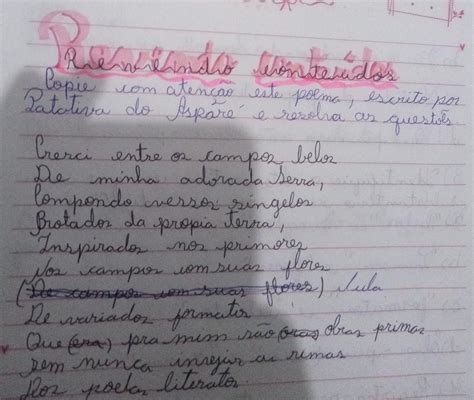 Revisando conteúdos
Copie com atenção este poema, escrito por
Patativa do Assaré e resolva as questões
Cresci entre os campos belos
De minha adorada Serra,
Compondo versos singelos
Brotados da propia terra,
Inspirados nos primores
Nos campos com suas flores
(De campos com suas flores) Nula
De variados formatos
Que (era) pra mim são (obras) obras primas
sem nunca invejar as rimas
Dos poetas literatos